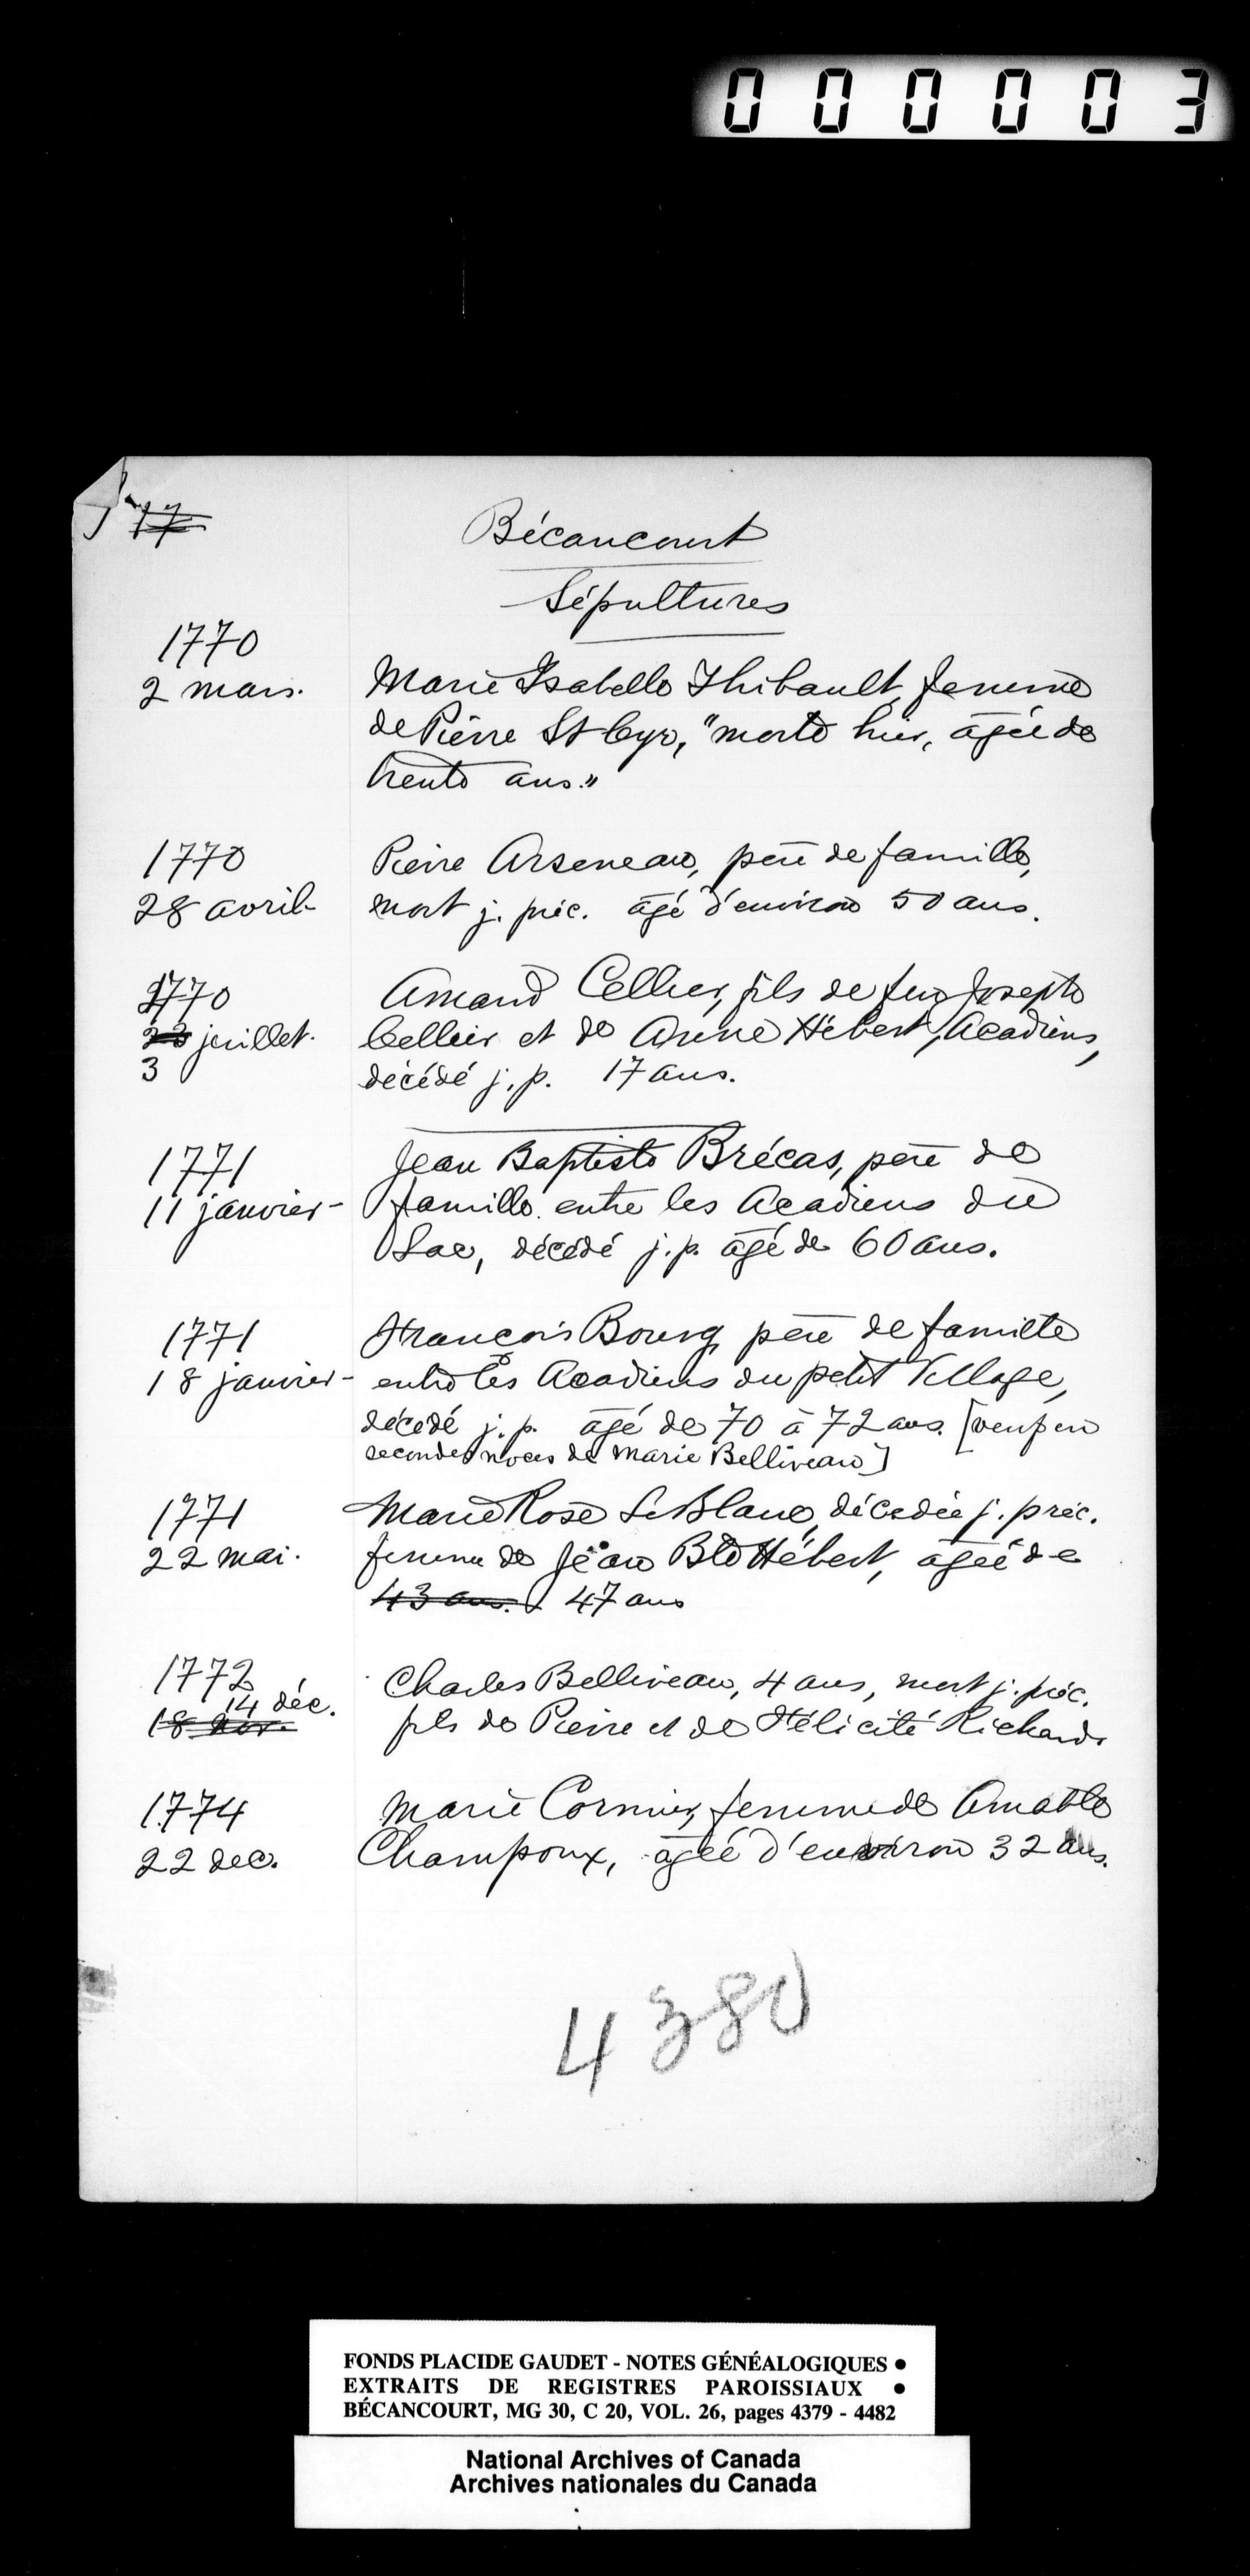 000003
17
Bécancourt
Sépultures
1770
2 mars.
Marie Isabelle Thibault, femme
de Pierre St Cyr, "morte hier, agée de
trente ans."
1770
28 avril
Pierre Arseneau, père de famille,
mort j. préc. âgé d'environ 50 ans.
1770
23 juillet.
3
Amand Cellier, fils de feu Joseph
Cellier et de Anne Hébert, Acadiens,
décédé j. p. 17 ans.
1771
11 janvier -
Jean Baptiste Brécas, père de
famille entre les Acadiens du
Lac, décédé j. p. âgé de 60 ans.
1771
18 janvier -
François Bourg père de famille
entre les Acadiens du petit Village,
décédé j. p. âgé de 70 à 72 ans. [veuf en
secondes noces de Marie Belliveau]
1771
22 mai.
Marie Rose LeBlanc, décédée j. préc.
femme de Jean Bte Hébert, agée de
43 ans. 47 ans
1772
14 déc.
18 nov.
Charles Belliveau, 4 ans, mort j. préc.
fils de Pierre et de Félicité Richard.
1774
22 dec.
Marie Cormier, femme de Amable
Champoux, agée d'environ 32 ans.
4380
FONDS PLACIDE GAUDET - NOTES GÉNÉALOGIQUES •
EXTRAITS DE REGISTRES PAROISSIAUX •
BÉCANCOURT, MG 30, C 20, VOL. 26, pages 4379 - 4482
National Archives of Canada
Archives nationales du Canada